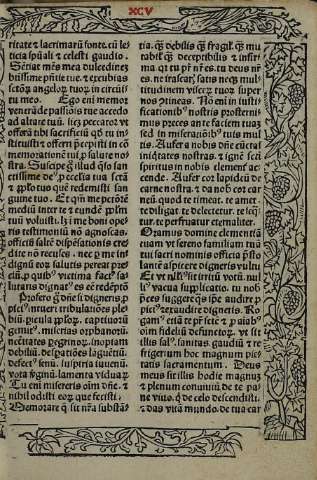 XCV
titate ⁊ lacrimarū fonte. cū le
ticia spūali ⁊ celesti gaudio.
Sētiat mēs mea dulcedinē
btissime pñtie tue. ⁊ excubias
sctōꝝ angeloꝝ tuoꝝ in circui
tu meo. Ego eni memor
venerāde passiōis tue accedo
ad altare tuū. licȝ peccator: vt
offerā tibi sacrificiū qḋ tu in
stituisti ⁊ offerri p̄cepisti in cō
memorationē tui ꝓ salute no
stra. Suscipe q̄s illud q̄so san
ctissime de⁹ ꝓ ecclia tua sctā
⁊ ꝓ pplo tuo quē redemisti san
guine tuo. Et qm̄ me pctōrē
mediū inter te ⁊ eundē pplm
tuū voluisti. lȝ in me boni ope
ris testimoniū nō agnoscas.
officiū saltē dispēsatiōis cre
dite nō recuses. nec p me in
dignū eoꝝ salutis pereat pre
ciū. ꝓ quibꝰ victima fact⁹ sa
lutaris dignat⁹ es eē redēptō
Profero q̄ꝫ dñe si digneris ꝓ
pici⁹ intueri tribulatiōes ple
biū. picula pploꝝ. captiuorū
gemit⁹. miserias orphanorū
necitates pegrinoꝝ. inopiam
debiliū. despatiōes lāguētiū.
defect⁹ senū. suspiria iuuenū.
vota v̄ginū. lamenta viduaꝝ
Tu eni misereris oim dñe. ⁊
nihil odisti eoꝝ que fecisti.
Memorare q̄ sit nr̄a substā
tia. q̄ꝫ debilis q̄ꝫ fragil⁹. q̄ꝫ mu
tabil⁹ q̄ꝫ deceptibilis ⁊ infir
ma. qꝛ tu pr̄ nr̄ es. tu deus nr̄
es. ne irascar⁹ satis. neqꝫ mul
titudinem viscerꝝ tuoꝝ super
nos cōtineas. Nō eni in iusti
ficationibꝰ nostris prosterni
mus preces an̄ faciem tuaꝫ
sed in miserationibꝰ tuis mul
tis. Aufer a nobis dñe cūctas
iniquitates nostras. ⁊ ignē scti
spiritus in nobis clemēter ac
cende. Aufer cor lapideū de
carne nostra. ⁊ da nobis cor car
neū. quod te timeat. te amet
te diligat. te delectetur. te seq̄
tur. te perfruatur eternaliter.
Oramus domine clementiā
tuam vt sereno familiam tuā
tui sacri nominis officia p̄sto
lantē aspicere digneris vultu
Et vt nulli⁹ sit irritū votū. nul
li⁹ vacua supplicatio. tu nob⁹
p̄ces suggere qs̄ ipse audire ꝓ
pici⁹ ⁊ exaudire digneris. Ro
gam⁹ etiā te scte pr̄. ⁊ ꝓ aīab⁹
oim fideliū defunctoꝝ. vt sit
illis sal⁹. sanitas. gaudiū ⁊ re
frigerium hoc magnum pie
tatis sacramentum. Deus
meus sit illis hodie magnuꝫ
⁊ plenum conuiuiū de te pa
ne viuo. qui de celo descendisti.
⁊ das vitā mundo. de tua car